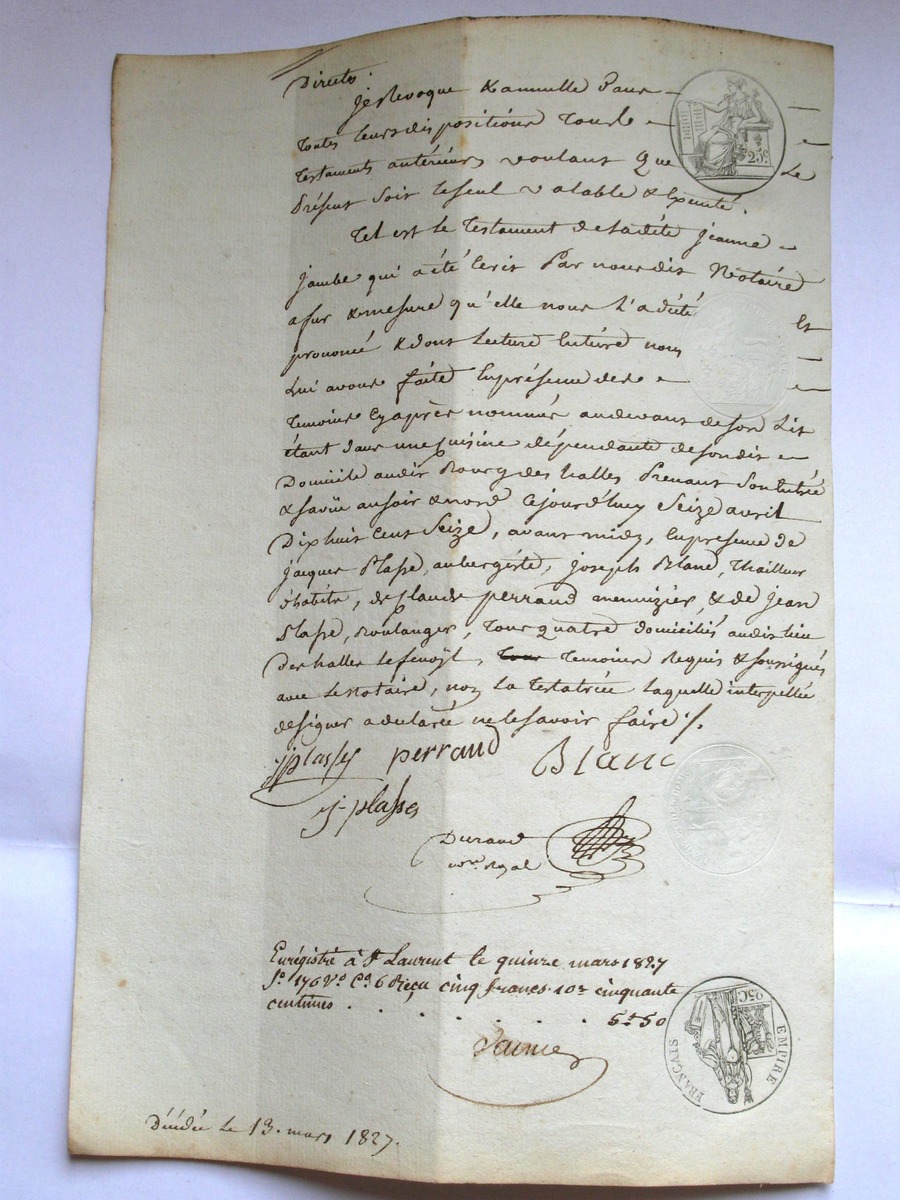 Directe.
Je Revoque & annulle Pour
toutes leurs dispositions tous le
testaments antérieurs voulant que Le
Présent soit le seul valable & Exécuté.
25c
Tel est le testament de Ladite Jeanne
jambe qui a été Ecrit Par nous dit Notaire
a fur & mesure qu'elle nous l'a dicté Et
prononcé & dont Lecture Entière nous
Lui avons faite En présence de
temoins Cy après nommés au devant de son Lit
étant dans une cuisine dépendante de son dit
Domicile au dit Bourg des halles Prenant son Entrée
& savüe au soir & nord Cejourd'huy Seize avril
Dix huit Cent Seize, avant midy, En présence de
jacques Plasse, aubergiste, joseph Blanc, Thailleur
d'habits, de Claude perraud mennizier, & de jean
Plasse, Boulanger, tous quatre domiciliés au dit lieu
des halles Lefenoÿl, temoins Requis & soussignés
avec Le Notaire, non La testatrice Laquelle interpellée
de signer a declarée ne le savoir faire ./.
jj plasse perraud Blanc
j- plasse
Durand
no.re Royal
Enrégistré à St Laurent le quinze mars 1827
fo. 176 Vo. Co. 6 Reçu cinq francs. 10e cinquante
centimes . . . . . . . 5f 50
25C
EMPIRE
FRANÇAIS
Décédée Le 13. mars 1827.